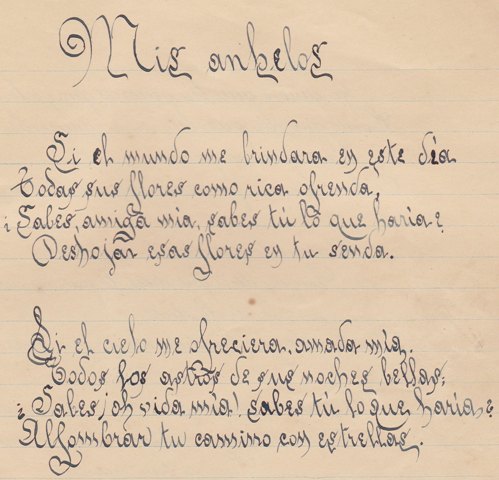 Mis anhelos
Si el mundo me brindara en este día
Todas sus flores como rica ofrenda,
¿Sabes, amiga mía, sabes tú lo que haría?
Deshojar esas flores en tu senda.
Si el cielo me ofreciera, amada mía,
Todos los astros de sus noches bellas;
¿Sabes ¡oh vida mía! sabes tú lo que haría?
Alfombrar tu camino con estrellas.